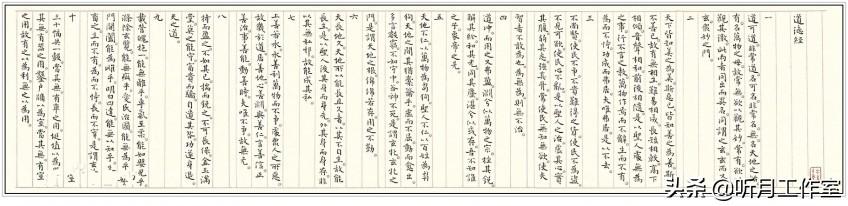 道德經
一
道可道非常道名可名非常名無名天地之始
有名萬物之母故常無欲以觀其妙常有欲以
觀其徼此兩者同出而異名同謂之玄玄而又
玄衆妙之門。
二
天下皆知美之為美斯惡已皆知善之為善斯
不善已故有無相生難易相成長短相較高下
相傾音聲相和前後相隨是以聖人處無為
之事行不言之教萬物作焉而不辭生而不有
為而不恃功成而弗居夫唯弗居是以不去
三
不尚賢使民不爭不貴難得之貨使民不為盜
不見可欲使民心不亂是以聖人之治虛其心實
其腹弱其志強其骨常使民無知無欲使夫
智者不敢為也為無為則無不治。
四
道沖而用之或不盈淵兮似萬物之宗挫其銳
解其紛和其光同其塵湛兮似或存吾不知誰
之子象帝之先。
五
天地不仁以萬物為芻狗聖人不仁以百姓為芻
狗天地之間其猶橐籥乎虛而不屈動而愈出
多言數窮不如守中谷神不死是謂玄牝玄牝之
門是謂天地之根綿綿若存用之不勤
六
天長地久天地所以能長且久者以其不自生故能
長生是以聖人後其身而身先外其身而身存非
以其無私邪故能成其私
七
上善若水水善利萬物而不爭處衆人之所惡
故幾於道居善地心善淵與善仁言善信正
善治事善能動善時夫唯不爭故無尤
八
持而盈之不如其已揣而銳之不可長保金玉滿
堂莫之能守富貴而驕自遺其咎功遂身退
天之道。
九
載營魄抱一能無離乎專氣致柔能如嬰兒乎
滌除玄覽能無疵乎愛民治國能無為乎天
門開闔能為雌乎明白四達能無知乎生之
畜之生而不有為而不恃長而不宰是謂玄
德 十
三十輻共一轂當其無有車之用埏埴以為
器當其無有器之用鑿戶牖以為室當其無有室
之用故有之以為利無之以為用。
头条 @听月工作室